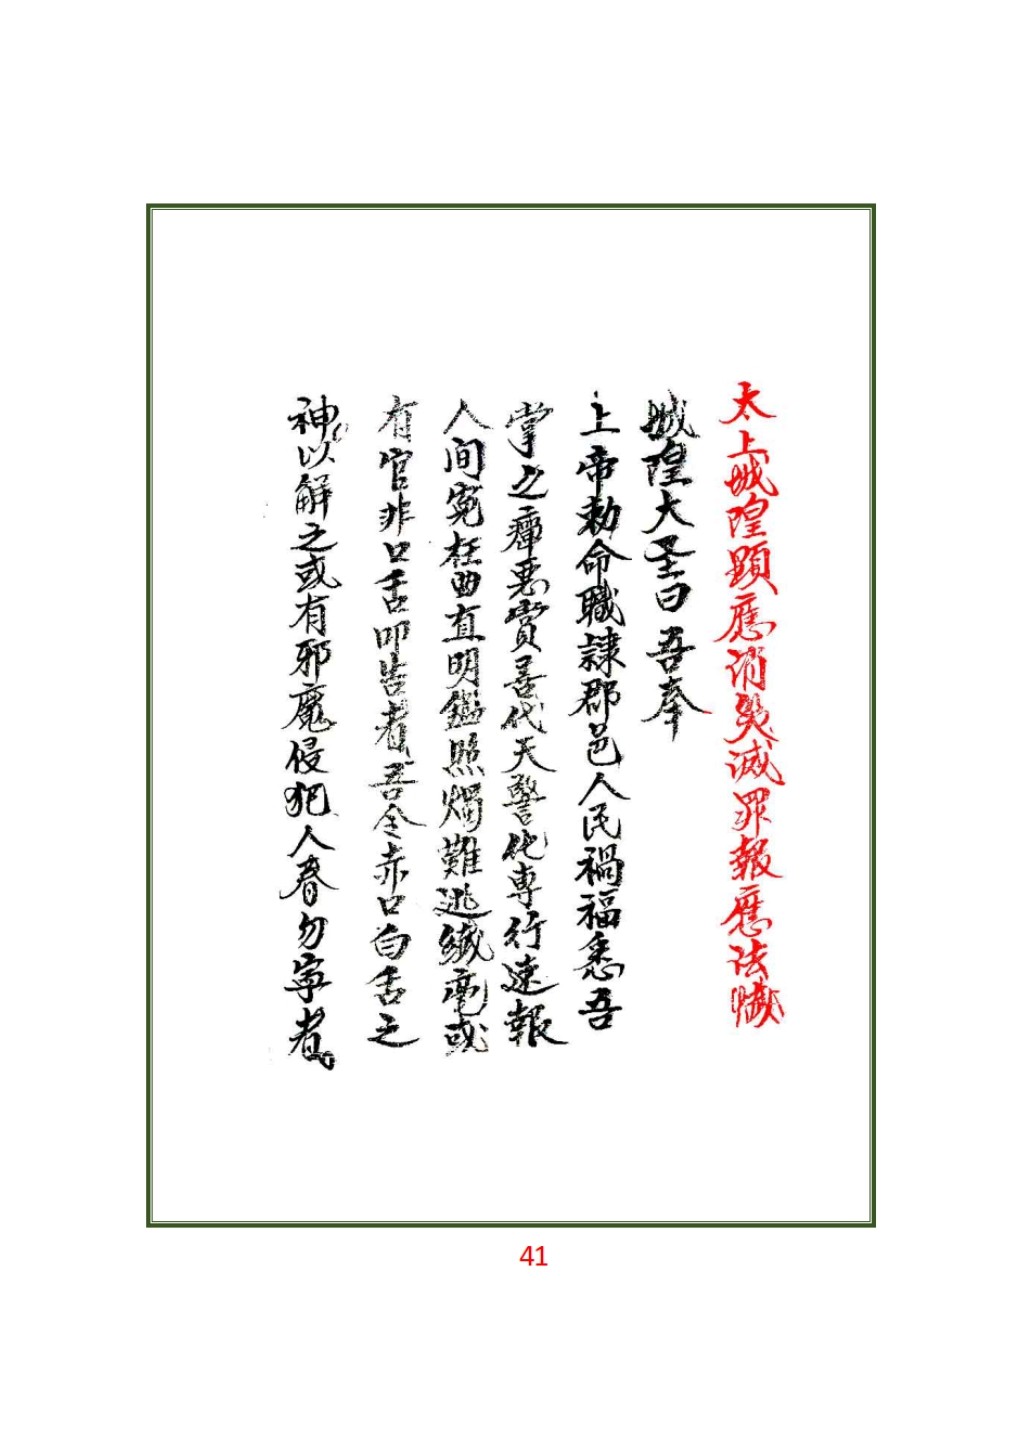 太上城隍顕應消災滅罪報應法懴
城隍大圣曰吾奉
上帝勅命職隷郡邑人民禍福悉吾
掌之癉悪賞善代天警化専行速報
人间寃枉曲直明鑑照燭難逃纎毫或
有官非口舌叩告者吾令赤口白舌之
神以解之或有邪魔侵犯人眷勿寧者
41